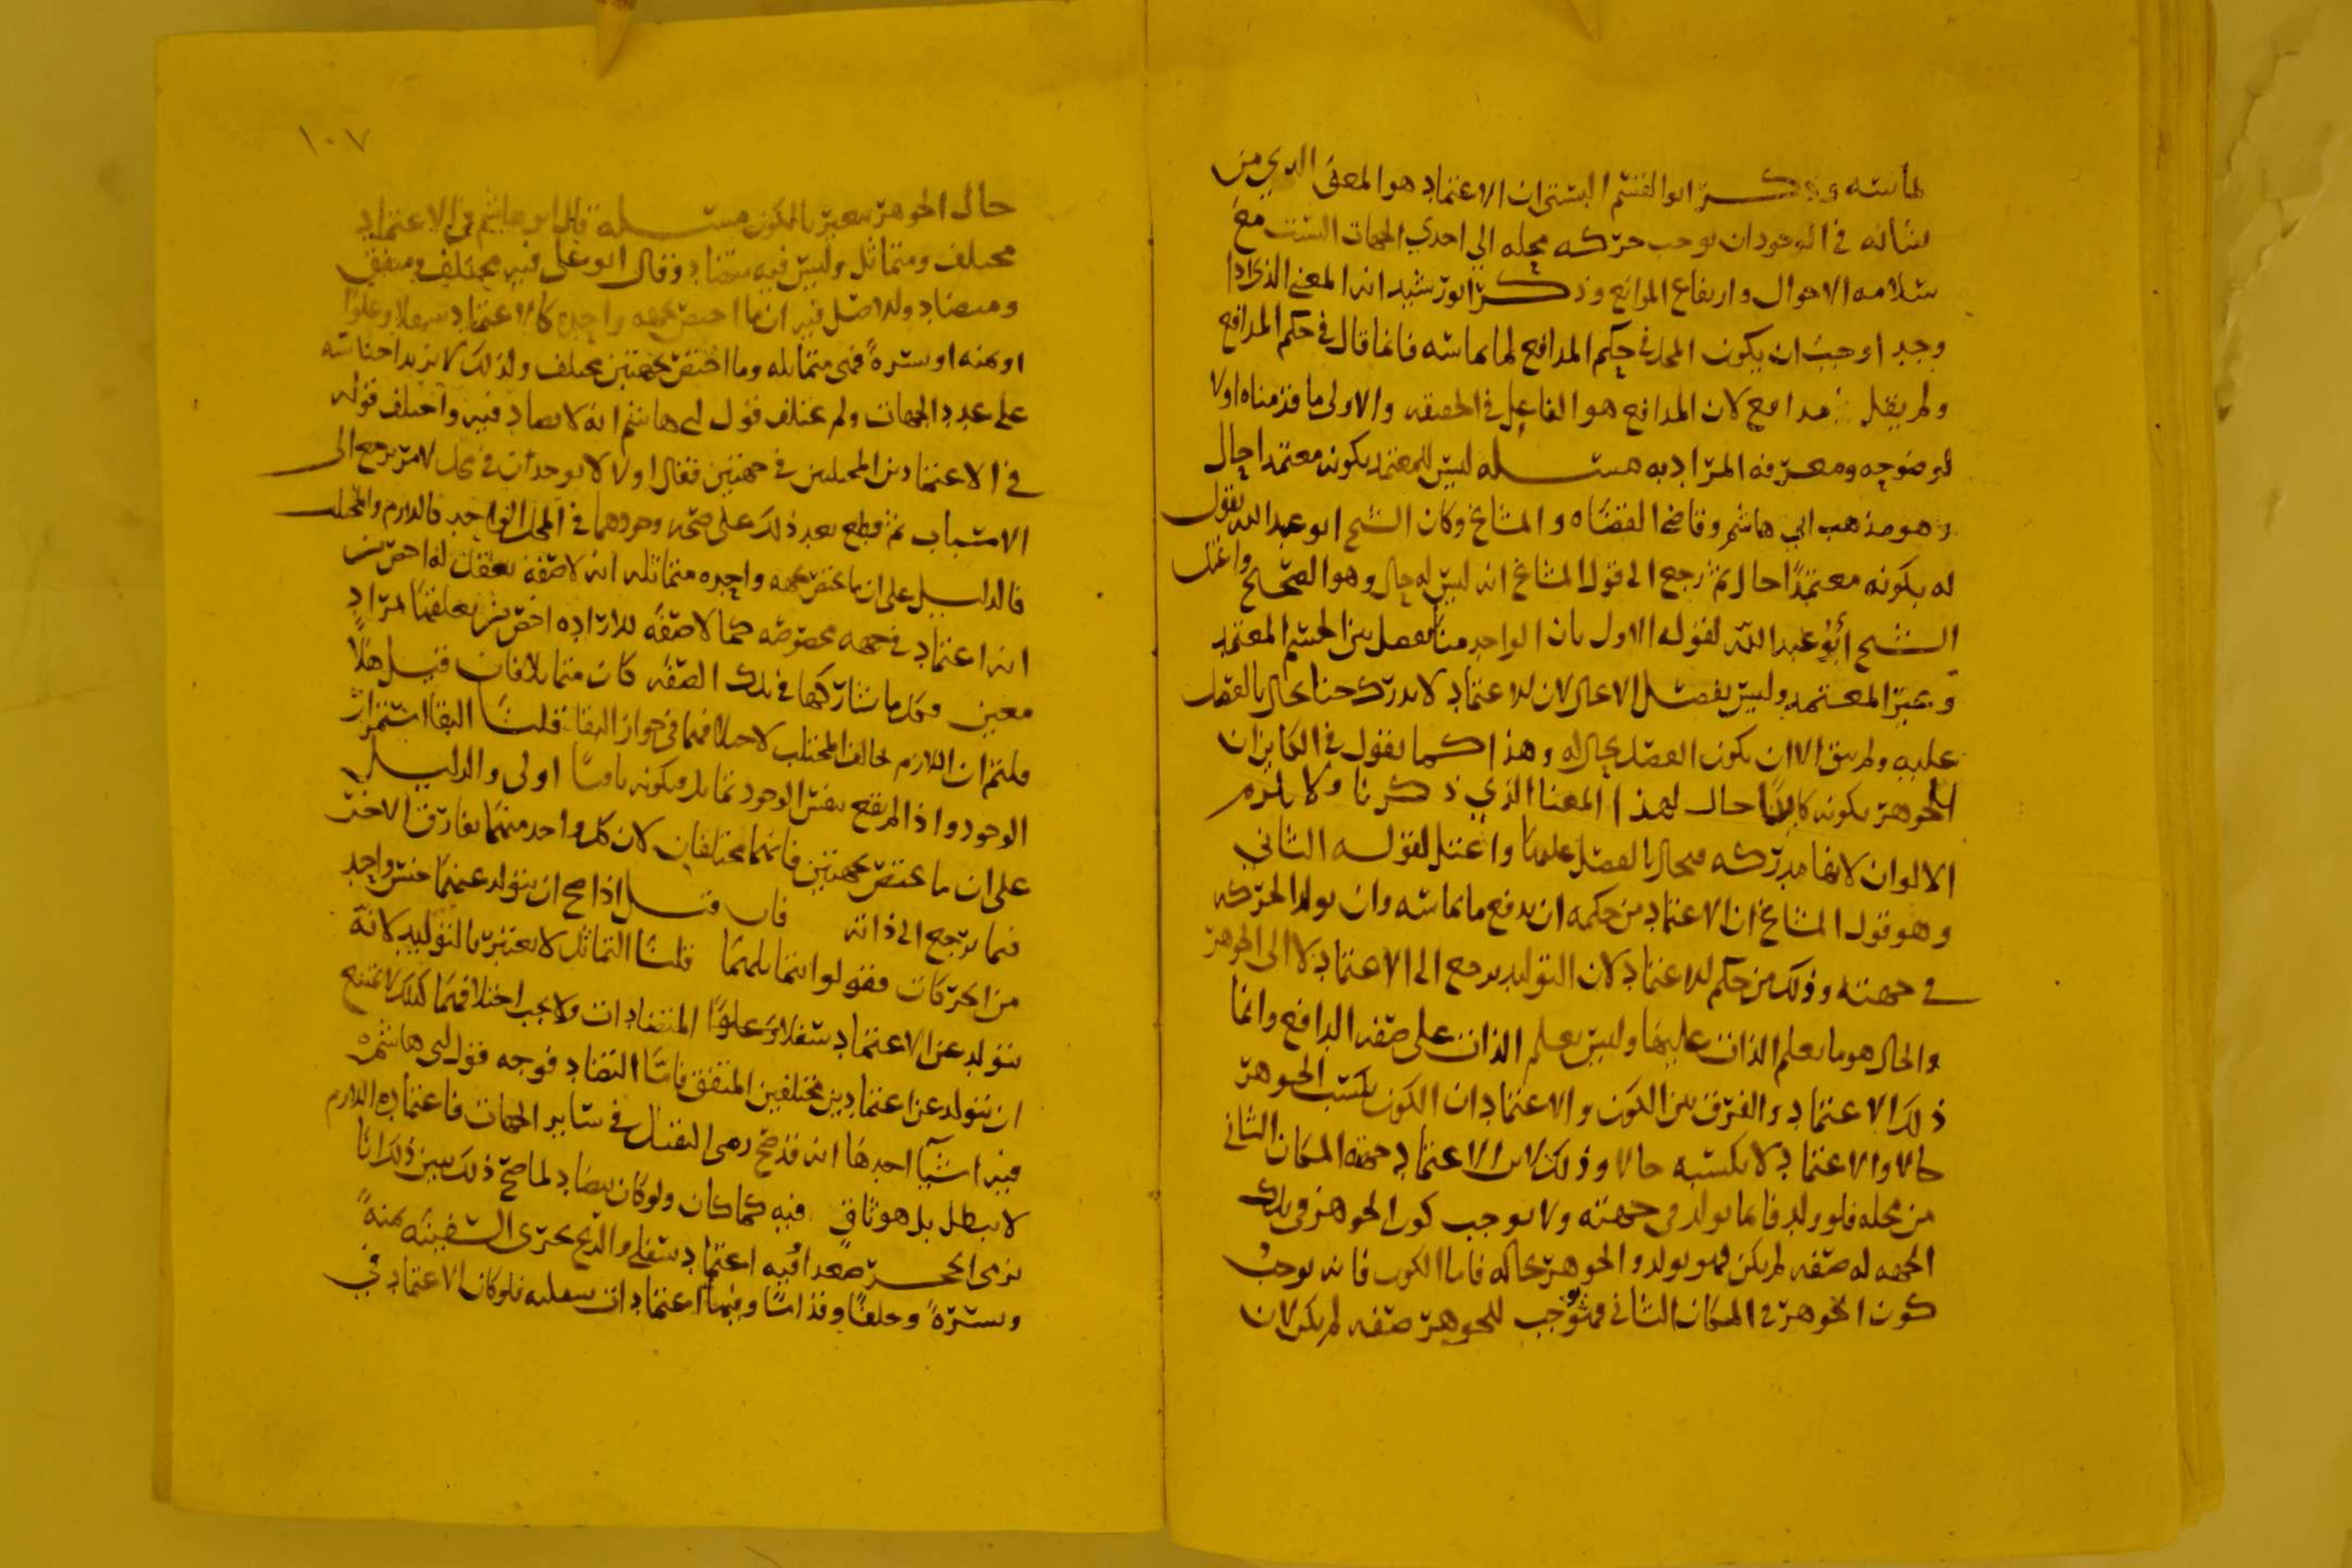 لما سته وذكر ابو القسم البستي ان الاعتماد هو المعنى الذي من
شانه في الوجود ان يوجب حركه محله الى احدى الجهات الست مع
سلامه الاحوال وارتفاع الموانع وذكر ابو رشيد انه المعنى الذي اذا
وجد اوجب ان يكون المحل في حكم المدافع لما يماسه فانما قال في حكم المدافع
ولم يقل مدافع لان المدافع هو الفاعل في الحقيقه والاولى ما قدمناه اولا
لوضوحه ومعرفه المراد به مسله ليس للمعتمد بكونه معتمدا حال
وهو مذهب ابي هاشم وقاضي القضاه والمشايخ وكان الشيخ ابو عبد الله يقول
له بكونه معتمدا حال ثم رجع الى قول المشايخ انه ليس له حال وهو الصحيح واعتل
الشيخ أبو عبد الله لقوله الاول بان الواحد منا يفصل بين الجسم المعتمد
وغير المعتمد وليس يفصل الا حال لان الاعتماد لا يدرك حتا يحال بالفصل
عليه ولم يبق الا ان يكون الفصل بحال له وهذا كما يقول في الكاين ان
للجوهر بكونه كاينا حال لهذا المعنا الذي ذكرنا ولا يلزم
الالوان لانها مدركه فيحال بالفصل عليها واعتل لقوله الثاني
وهو قول المشايخ ان الاعتماد من حكمه ان يدفع ما يماسه وان يولد الحركه
في جهته وذلك من حكم الاعتماد لان التوليد يرجع الى الاعتماد لا الى الجوهر
والحال هو ما يعلم الذات عليها وليس يعلم الذات على صفه الدافع وانما
ذلك الاعتماد والفرق بين الكون والاعتماد ان الكون يكسب الجوهر
حالا والاعتماد لا يكسبه حالا وذلك لان الاعتماد جهته المكان الثاني
من محله فلو ولد فانما يولد في جهته ولا يوجب كون الجوهر في تلك
الجهه له صفه لم يكن فهو يولد والجوهر بحاله فاما الكون فانه يوجب
كون الجوهر في المكان الثاني فيوجب للجوهر صفه لم يكن لان
١٠٧
حال الجوهر يتغير بالكون مسله قال ابو هاشم في الاعتماد
مختلف ومتماثل وليس فيه متضاد وقال ابو علي فيه مختلف ومتفق
ومتضاد والاصل فيه ان ما اختص بجهه واحده كالاعتماد سفلا وعلوا
او يمنه او يسرة فهي متماثله وما اختص بجهتين مختلف ولذلك لا يزيد اجناسه
على عدد الجهات ولم يختلف قول ابي هاشم انه لا تضاد فيه واختلف قوله
في الاعتمادين المختلفين في جهتين فقال اولا لا يوجدان في محل لامر يرجع الى
الاسباب ثم قطع بعد ذلك على صحه وجودهما في المحل الواحد كاللازم والمجتلب
فالدليل على ان ما يختص بجهه واحده متماثله انه لا صفه تعقل له اخص من
انه اعتماد في جهه مخصوصه كما لا صفه للاراده اخص من تعلقها بمراد
معين وكل ما شاركها في تلك الصفه كان متماثلا فان قيل هلا
قلتم ان اللازم يخالف المجتلب لاختلافهما في جواز البقا قلنا البقا استمرار
الوجود واذا لم يقع بنفس الوجود تماثل فبكونه باقيا اولى والدليل
على ان ما يختص بجهتين فانهما مختلفان لان كل واحد منهما يفارق الاخر
فيما يرجع الى ذاته فان قيل اذا صح ان يتولد عنهما جنس واحد
من الحركات فقولوا بتماثلهما قلنا التماثل لا يعتبر بالتوليد لانه
يتولد عن الاعتماد سفلا وعلوا المتضادات ولا يجب اختلافهما كذلك لا يمتنع
ان يتولد عن اعتمادين مختلفين المتفق فاما التضاد فوجه قول ابي هاشم
فيه اشيا احدها انه قد صح رمي الثقيل في ساير الجهات فاعتماده اللازم
لا يبطل بل هو ثاق فيه كما كان ولو كان يتضاد لما صح ذلك يبين ذلك انا
نرمي الحجر صعدا وفيه اعتماد سفلي والريح تجري السفينه يمنة
ويسرة وخلفا وقداما وفيها اعتمادات سفليه فلو كان الاعتماد في